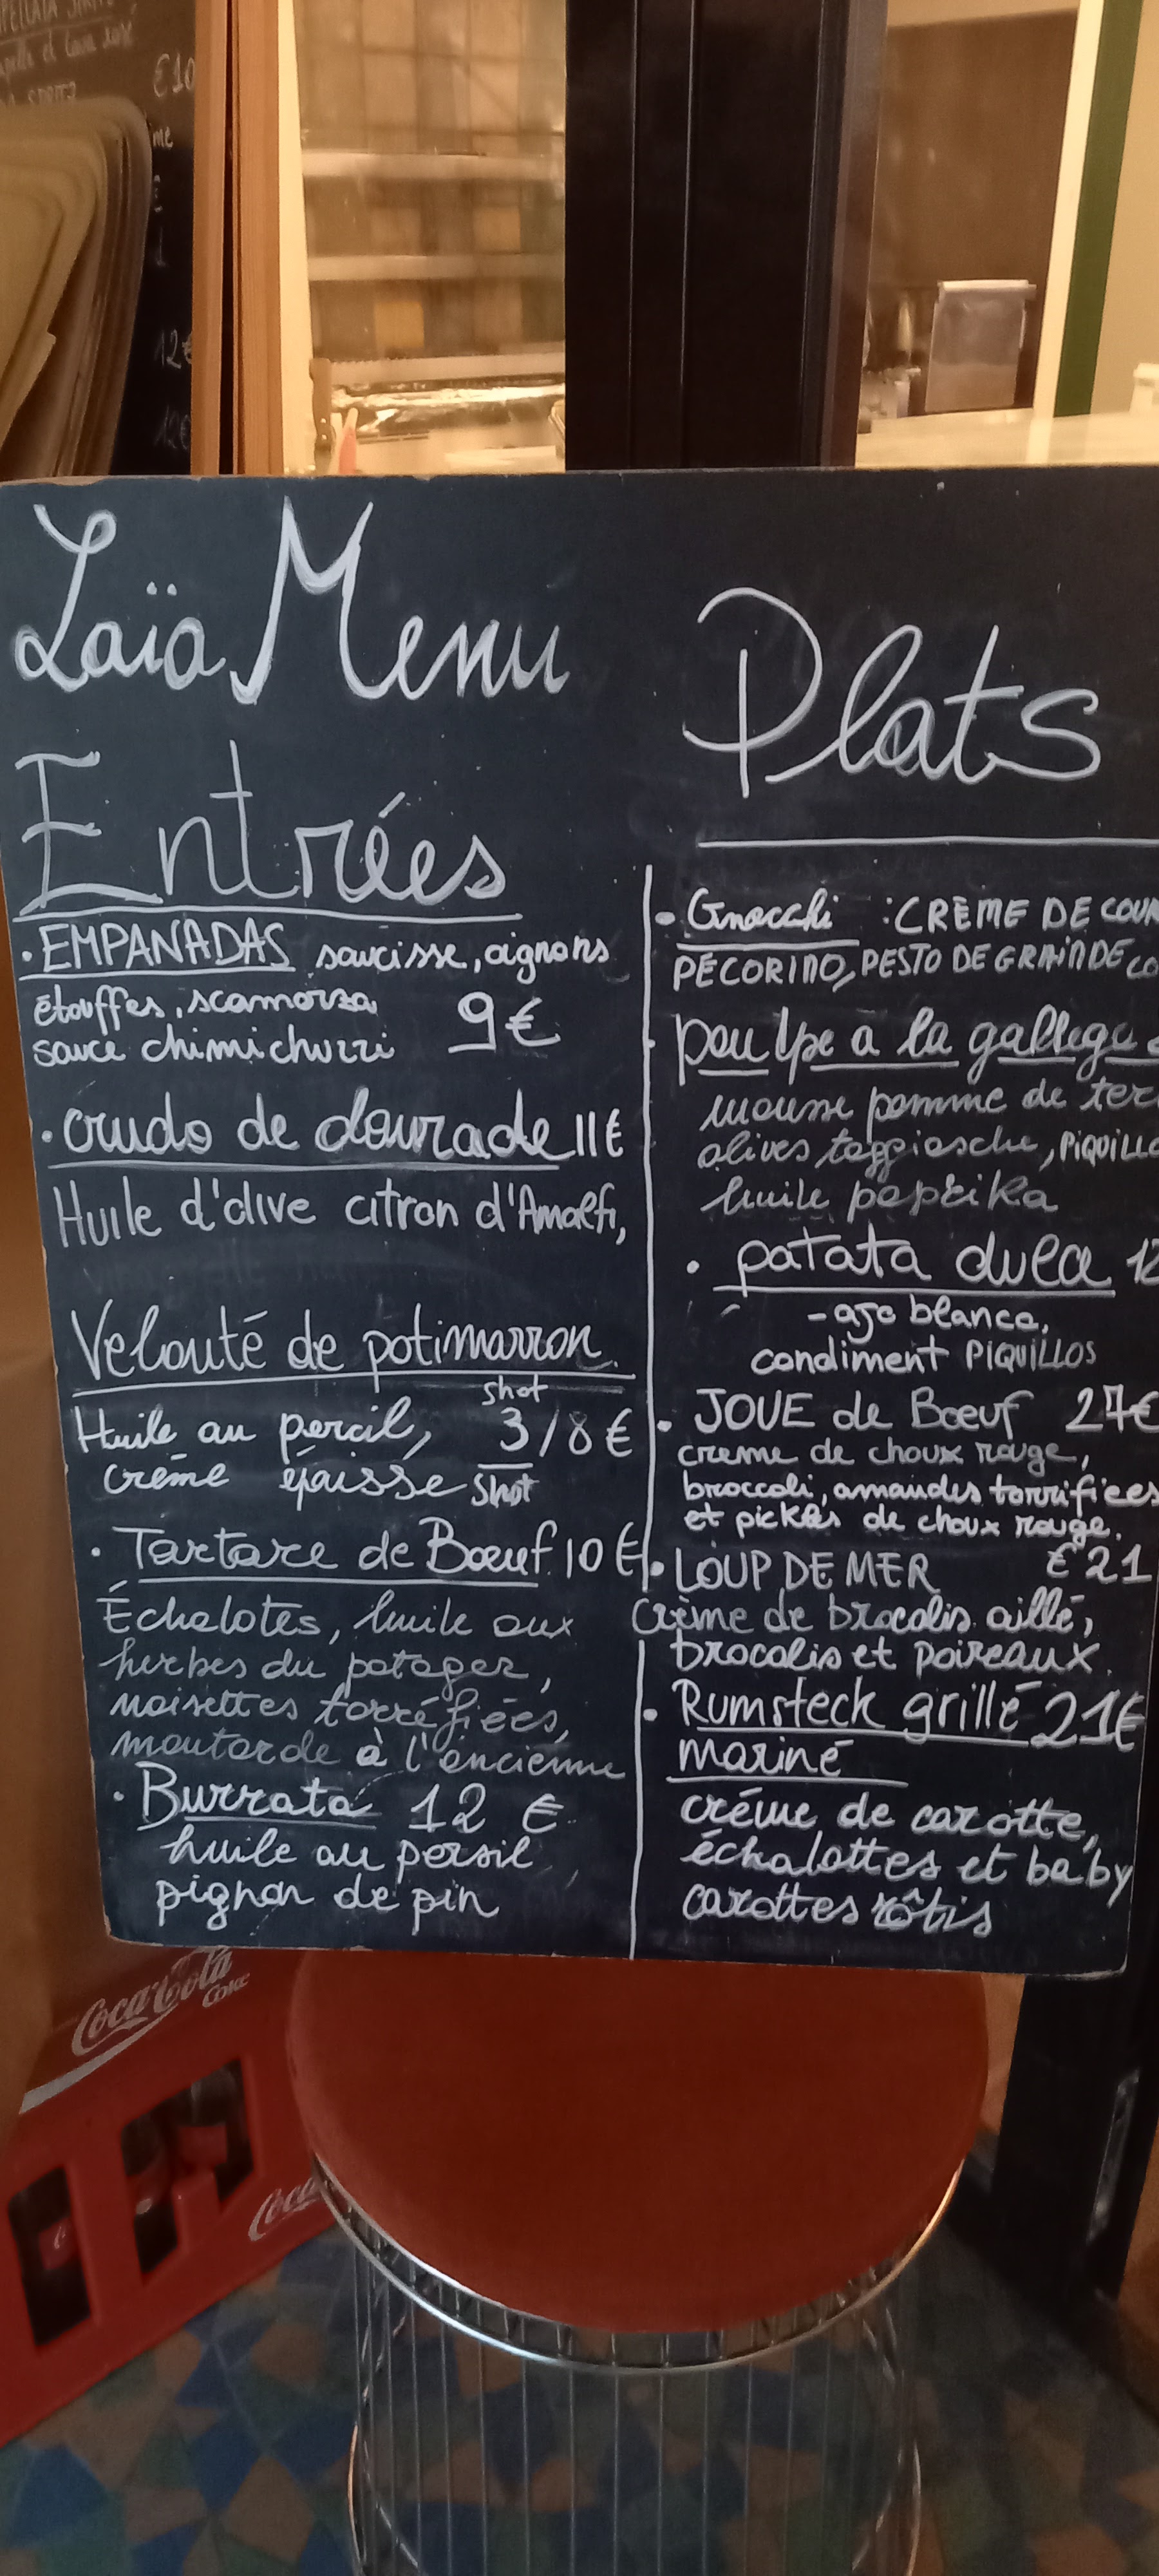 €10
12€
12€
Laïa Menu
Entrées
· EMPANADAS saucisse, oignons
étouffés, scamorza
sauce chimichurri 9€
· crudo de dourade 11€
Huile d'olive citron d'Amalfi,
Velouté de potimarron
shot
Huile au percil, 3/8€
crème épaisse shot
· Tartare de Bœuf 10€
Échalotes, huile aux
herbes du potager,
noisettes torréfiées,
moutarde à l'ancienne
· Burrata 12 €
huile au persil
pignon de pin
Plats
· Gnocchi : CRÈME DE COUR
PECORINO, PESTO DE GRAINDE CO
· poulpe a la gallega
mousse pomme de ter
olives taggiasche, PIQUILLO
huile paprika
· patata dulce 12
- ajo blanco,
condiment PIQUILLOS
· JOUE de Bœuf 27€
creme de choux rouge,
broccoli, amandes torrifiees
et pickles de choux rouge.
· LOUP DE MER €21
Crème de brocolis aillé,
brocolis et poireaux
· Rumsteck grillé 21€
mariné
créme de carotte,
échalottes et baby
carottes rôtis
Coca-Cola
Coke
Coca